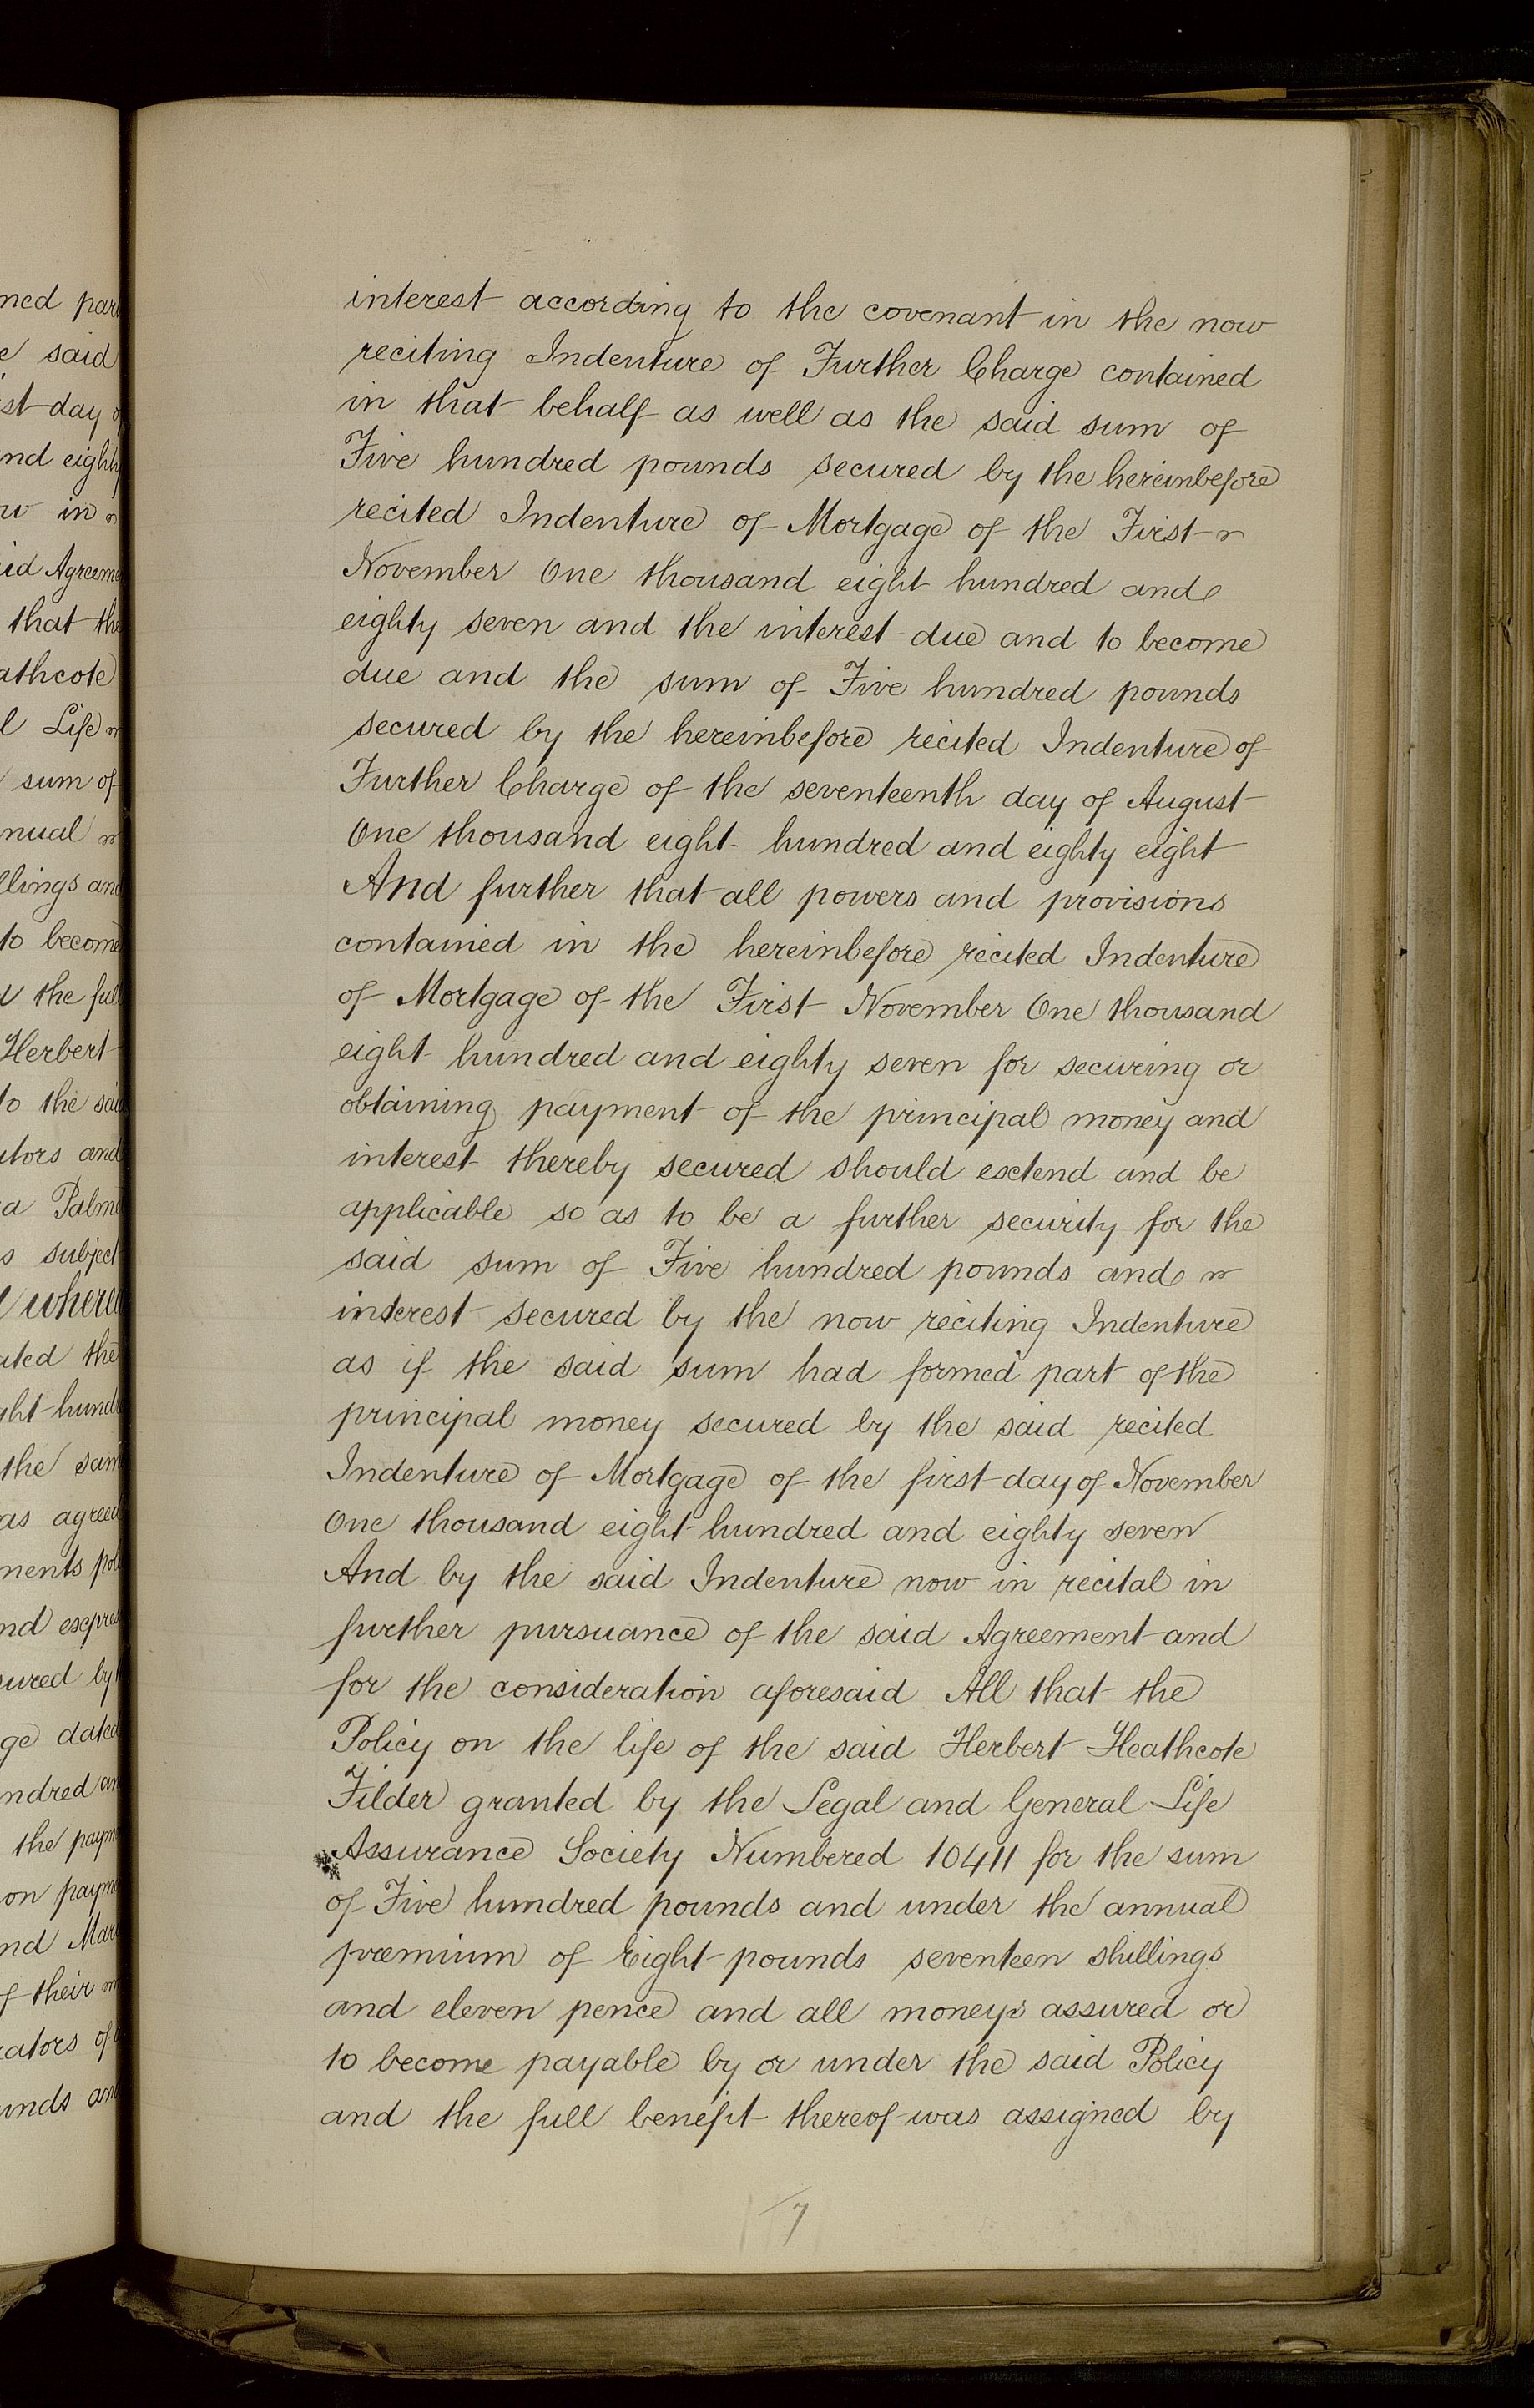 ned par
e said
st day o
nd eighty
w in
id Agreeme
that the
athcote
l Life
sum of
nual
llings and
to become
the full
Herbert
to the said
utors and
a Palme
s subject
where
ated the
ght hund
the sam
as agreed
ments pol
nd expres
ured by
ge dated
ndred an
the payme
on payme
nd Mar
f their
rators of
unds and
interest according to the covenant in the now
reciting Indenture of Further Charge contained
in that behalf as well as the said sum of
Five hundred pounds secured by the hereinbefore
recited Indenture of Mortgage of the First
November One thousand eight hundred and
eighty seven and the interest due and to become
due and the sum of Five hundred pounds
secured by the hereinbefore recited Indenture of
Further Charge of the seventeenth day of August
One thousand eight hundred and eighty eight
And further that all powers and provisions
contained in the hereinbefore recited Indenture
of Mortgage of the First November One thousand
eight hundred and eighty seven for securing or
obtaining payment of the principal money and
interest thereby secured should extend and be
applicable so as to be a further security for the
said sum of Five hundred pounds and
interest secured by the now reciting Indenture
as if the said sum had formed part of the
principal money secured by the said recited
Indenture of Mortgage of the first day of November
One thousand eight hundred and eighty seven
And by the said Indenture now in recital in
further pursuance of the said Agreement and
for the consideration aforesaid All that the
Policy on the life of the said Herbert Heathcote
Filder granted by the Legal and General Life
Assurance Society Numbered 10411 for the sum
of Five hundred pounds and under the annual
præmium of Eight pounds seventeen shillings
and eleven pence and all moneys assured or
to become payable by or under the said Policy
and the full benefit thereof was assigned by
7